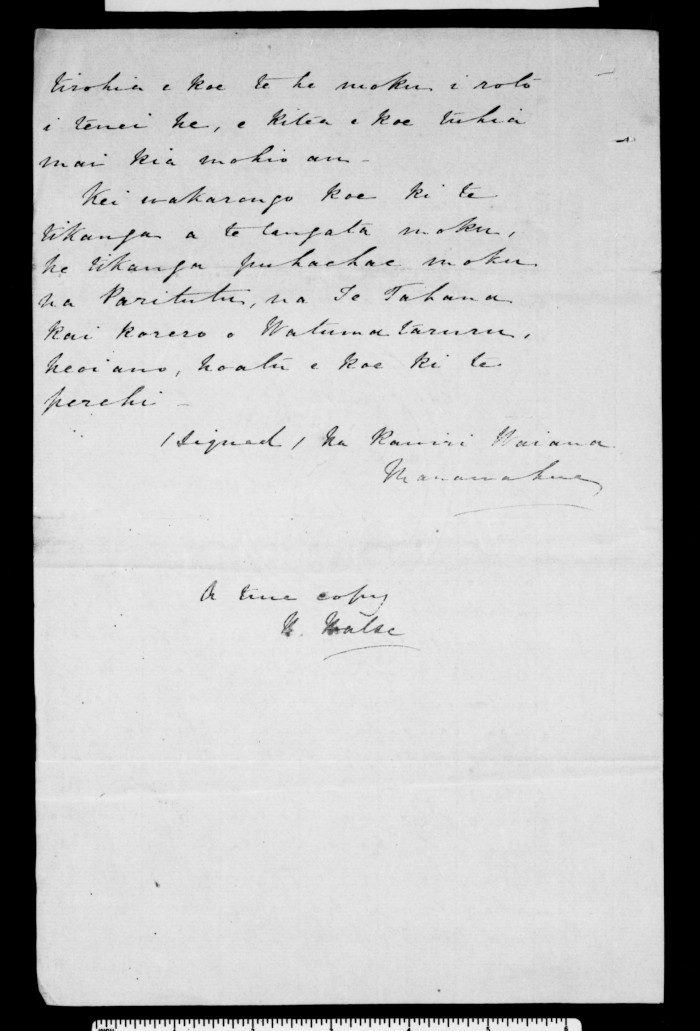 tirohia e koe te he moku i roto
i tenei he, e kitea e koe tuhia
mai kia mohio au -
Kei wakarongo koe ki te
tikanga a te tangata moku,
he tikanga puhaehae moku
na Paritutu, na Te Tahana
kai korero o Watuma taruru,
heoiano, hoatu e koe ki te
perehi -
(Signed) Na
A true copy